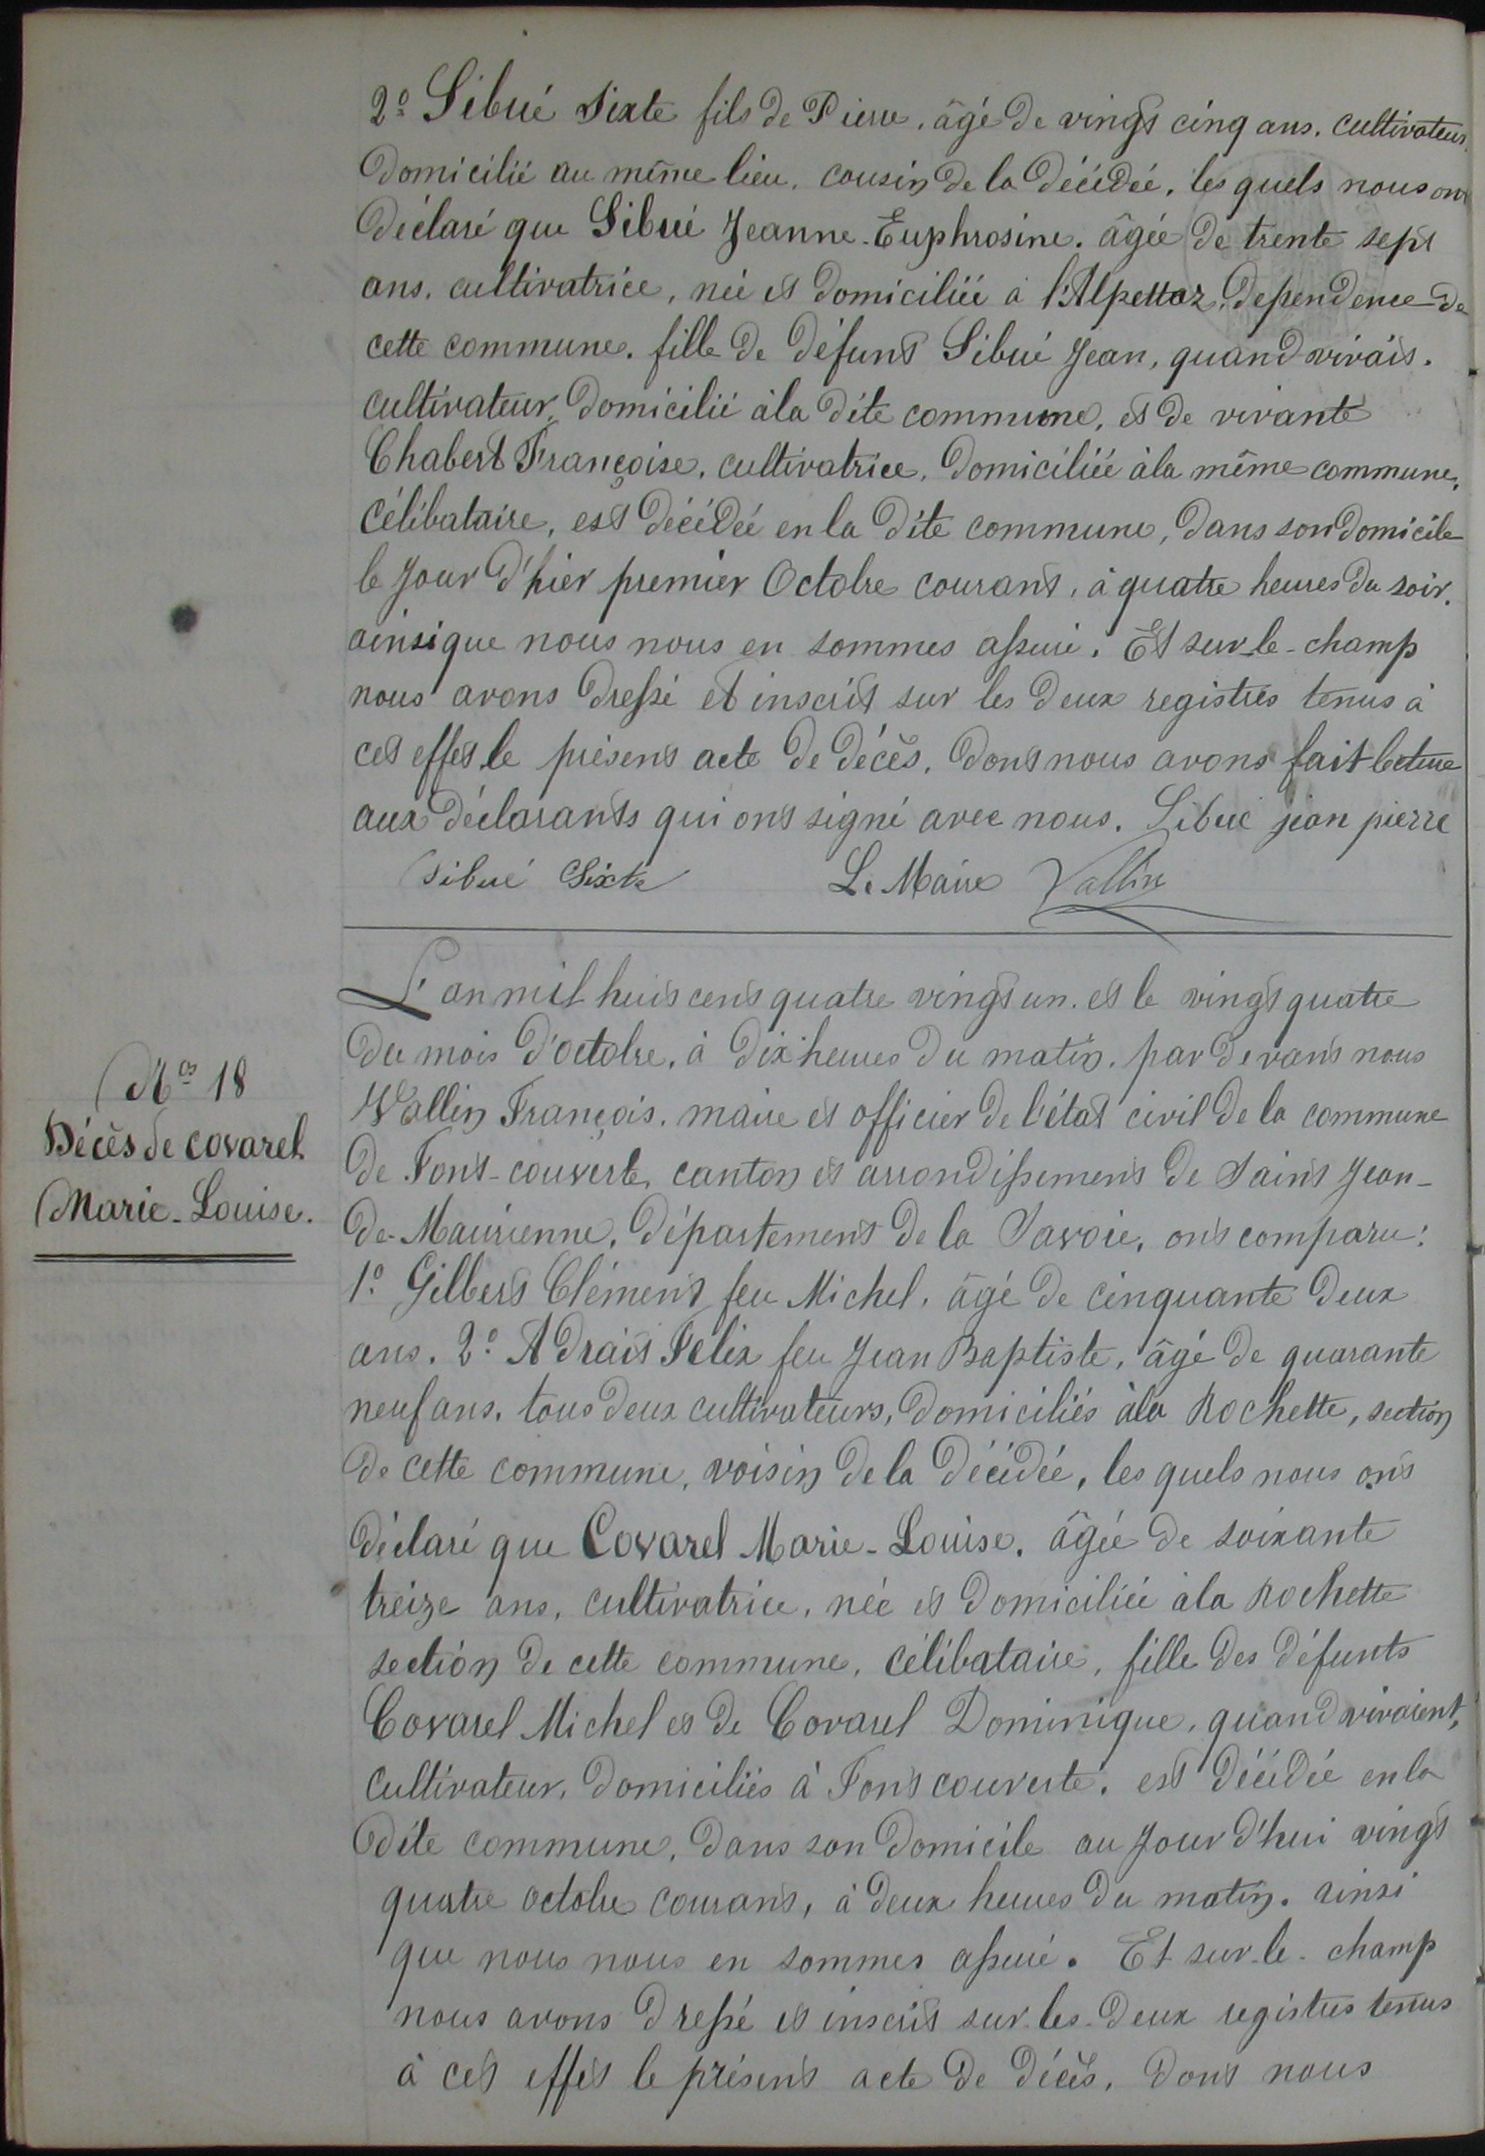 2º Sibué Sixte fils de Pierre, âgé de vingt cinq ans, cultivateur,
domicilié au même lieu, cousin de la décédée, les quels nous ont
déclaré que Sibué Jeanne-Euphrosine, âgée de trente sept
ans, cultivatrice, née et domiciliée à l'Alpettaz, dependence de
cette commune, fille de défunt Sibué Jean, quand vivait,
cultivateur, domicilié à la dite commune, et de vivante
Chabert Françoise, cultivatrice, domiciliée à la même commune,
célibataire, est décédée en la dite commune, dans son domicile
le jour d'hier premier Octobre courant, à quatre heures du soir,
ainsi que nous nous en sommes assuré. Et sur-le-champ
nous avons dressé et inscrit sur les deux registres tenus à
cet effet, le présent acte de décès, dont nous avons fait lecture
aux déclarants qui ont signé avec nous. Sibué jean pierre
Sibué Sixte Le Maire Vallin
L'an mil huit cent quatre vingt un, et le vingt quatre
du mois d'octobre, à dix heures du matin, par devant nous
Nº 18
Décès de Covarel
Marie-Louise.
Vallin François, maire et officier de l'état civil de la commune
de Font-couverte, canton et arrondissement de Saint Jean-
de-Maurienne, département de la Savoie, ont comparu:
1º Gilbert Clément feu Michel, âgé de cinquante deux
ans, 2º Adrait Félix feu Jean Baptiste, âgé de quarante
neuf ans, tous deux cultivateurs, domiciliés à la Rochette, section
de cette commune, voisin de la décédée, les quels nous ont
déclaré que Covarel Marie-Louise, âgée de soixante
treize ans, cultivatrice, née et domiciliée à la Rochette
section de cette commune, célibataire, fille des défunts
Covarel Michel et de Covarel Dominique, quand vivaient,
cultivateur, domiciliés à Font couverte, est décédée en la
dite commune, dans son domicile au jour d'hui vingt
quatre octobre courant, à deux heures du matin, ainsi
que nous nous en sommes assuré. Et sur-le-champ
nous avons dressé et inscrit sur-les-deux registres tenus
à cet effet le présent acte de décès, dont nous